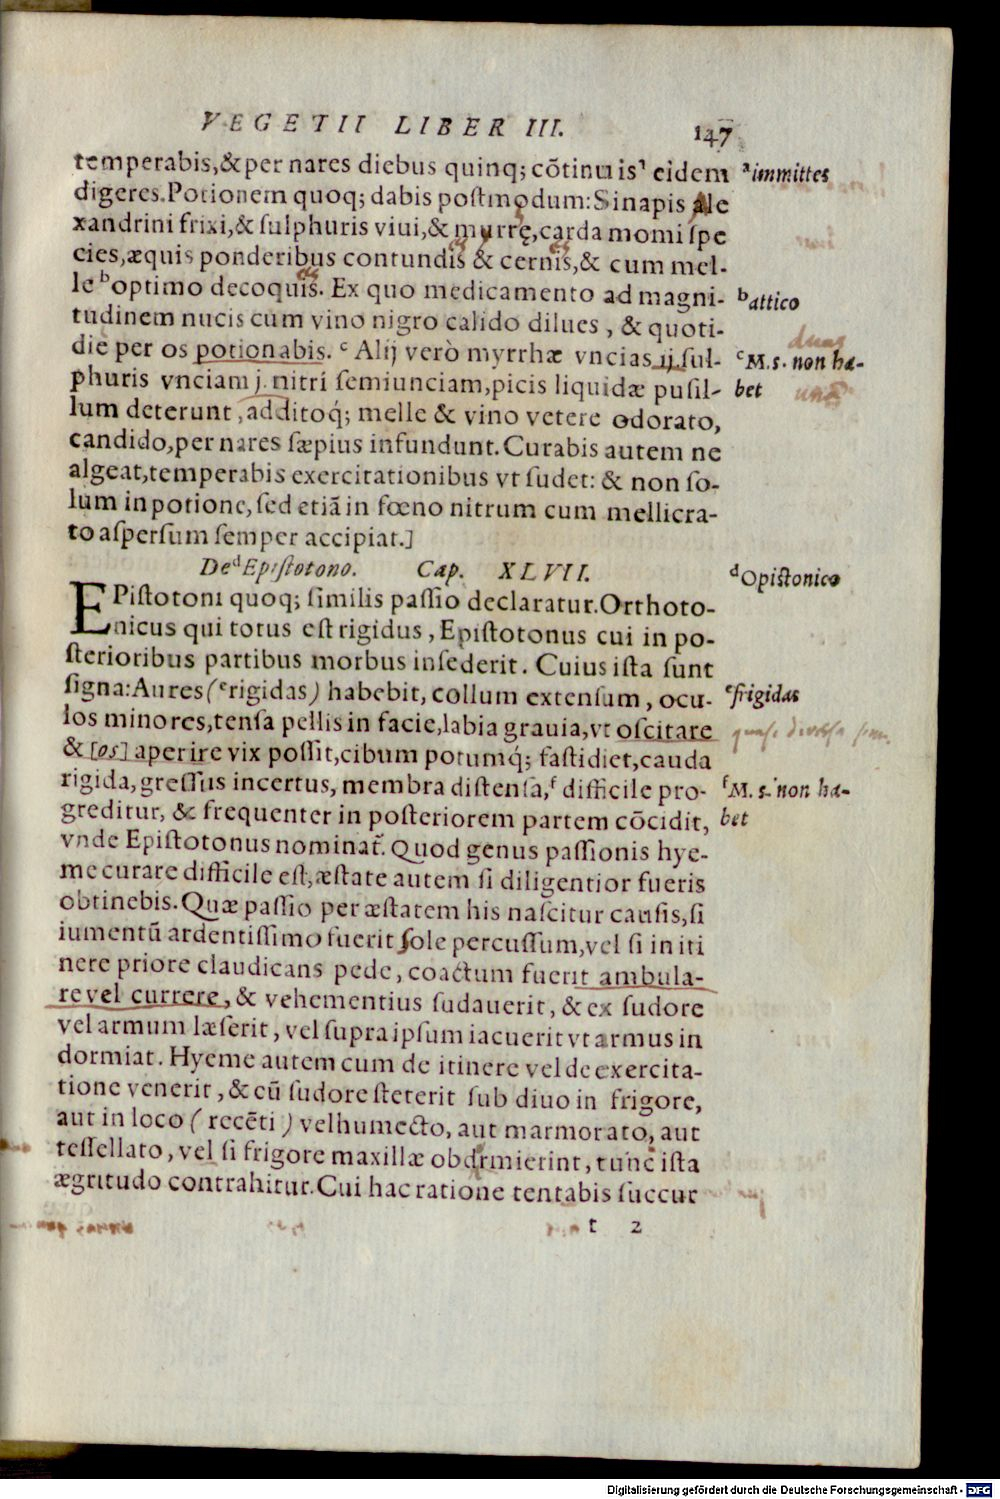 VEGETII LIBER III. 147
temperabis,&per nares diebus quinq; cōtinuis ᵃ eidem
digeres.Potionem quoq; dabis postmodum:Sinapis Ale
xandrini frixi,& sulphuris viui,& myrrę,carda momi spe
cies,æquis ponderibus contundis & cernis,& cum mel-
le ᵇ optimo decoquis. Ex quo medicamento ad magni-
tudinem nucis cum vino nigro calido dilues, & quoti-
die per os potionabis. ᶜ Alij verò myrrhæ vncias ij.sul-
phuris vnciam j. nitri semiunciam,picis liquidæ pusil-
lum deterunt,additoq́; melle & vino vetere odorato,
candido,per nares sæpius infundunt.Curabis autem ne
algeat,temperabis exercitationibus vt sudet: & non so-
lum in potione,sed etiā in fœno nitrum cum mellicra-
to aspersum semper accipiat.]
ᵃ immittes
ᵇ attico
duas
ᶜ M.s. non ha-
bet
De ᵈ Epistotono. Cap. XLVII.
EPistotoni quoq; similis passio declaratur.Orthoto-
nicus qui totus est rigidus, Epistotonus cui in po-
sterioribus partibus morbus insederit. Cuius ista sunt
signa:Aures (ᵉ rigidas) habebit, collum extensum, ocu-
los minores,tensa pellis in facie,labia grauia,vt oscitare
& [os] aperire vix possit,cibum potumq́; fastidiet,cauda
rigida,gressus incertus, membra distensa,ᶠ difficile pro-
greditur, & frequenter in posteriorem partem cōcidit,
vnde Epistotonus nominat̃. Quod genus passionis hye-
me curare difficile est,æstate autem si diligentior fueris
obtinebis. Quæ passio per æstatem his nascitur causis,si
iumentū ardentissimo fuerit sole percussum,vel si in iti
nere priore claudicans pede, coactum fuerit ambula-
re vel currere, & vehementius sudauerit, & ex sudore
vel armum læserit, vel supra ipsum iacuerit vt armus in
dormiat. Hyeme autem cum de itinere vel de exercita-
tione venerit, & cū sudore steterit sub diuo in frigore,
aut in loco (recēti) vel humecto, aut marmorato, aut
tessellato, vel si frigore maxillæ obdormierint, tunc ista
ægritudo contrahitur.Cui hac ratione tentabis succur
ᵈ Opistonico
ᵉ frigidas
ᶠ M. s. non ha-
bet
t 2
Digitalisierung gefördert durch die Deutsche Forschungsgemeinschaft - DFG